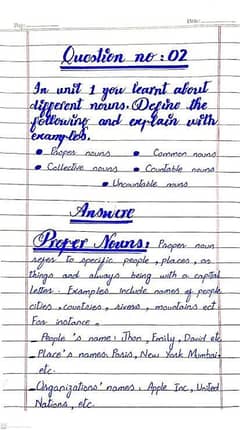 Date:
Question no: 02
In unit 1 you learnt about
different nouns. Define the
following and explain with
examples.
• Proper nouns • Common nouns
• Collective nouns • Countable nouns
• Uncountable nouns
Answere
Proper Nouns: Proper noun
refer to specific people, places, or
things and always being with a capital
letter. Examples include names of people
cities, countries, rivers, mountains ect.
For instance.
_ People's name: Jhon, Emily, David etc
_ Place's names: Paris, New York Mumbai
etc.
_ Organizations' names: Apple Inc, United
Nations, etc.